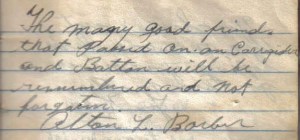 The many good friends
that Passed on on Corregidor
and Battan will be
remembered and not
forgotin.
Elton L. Barber